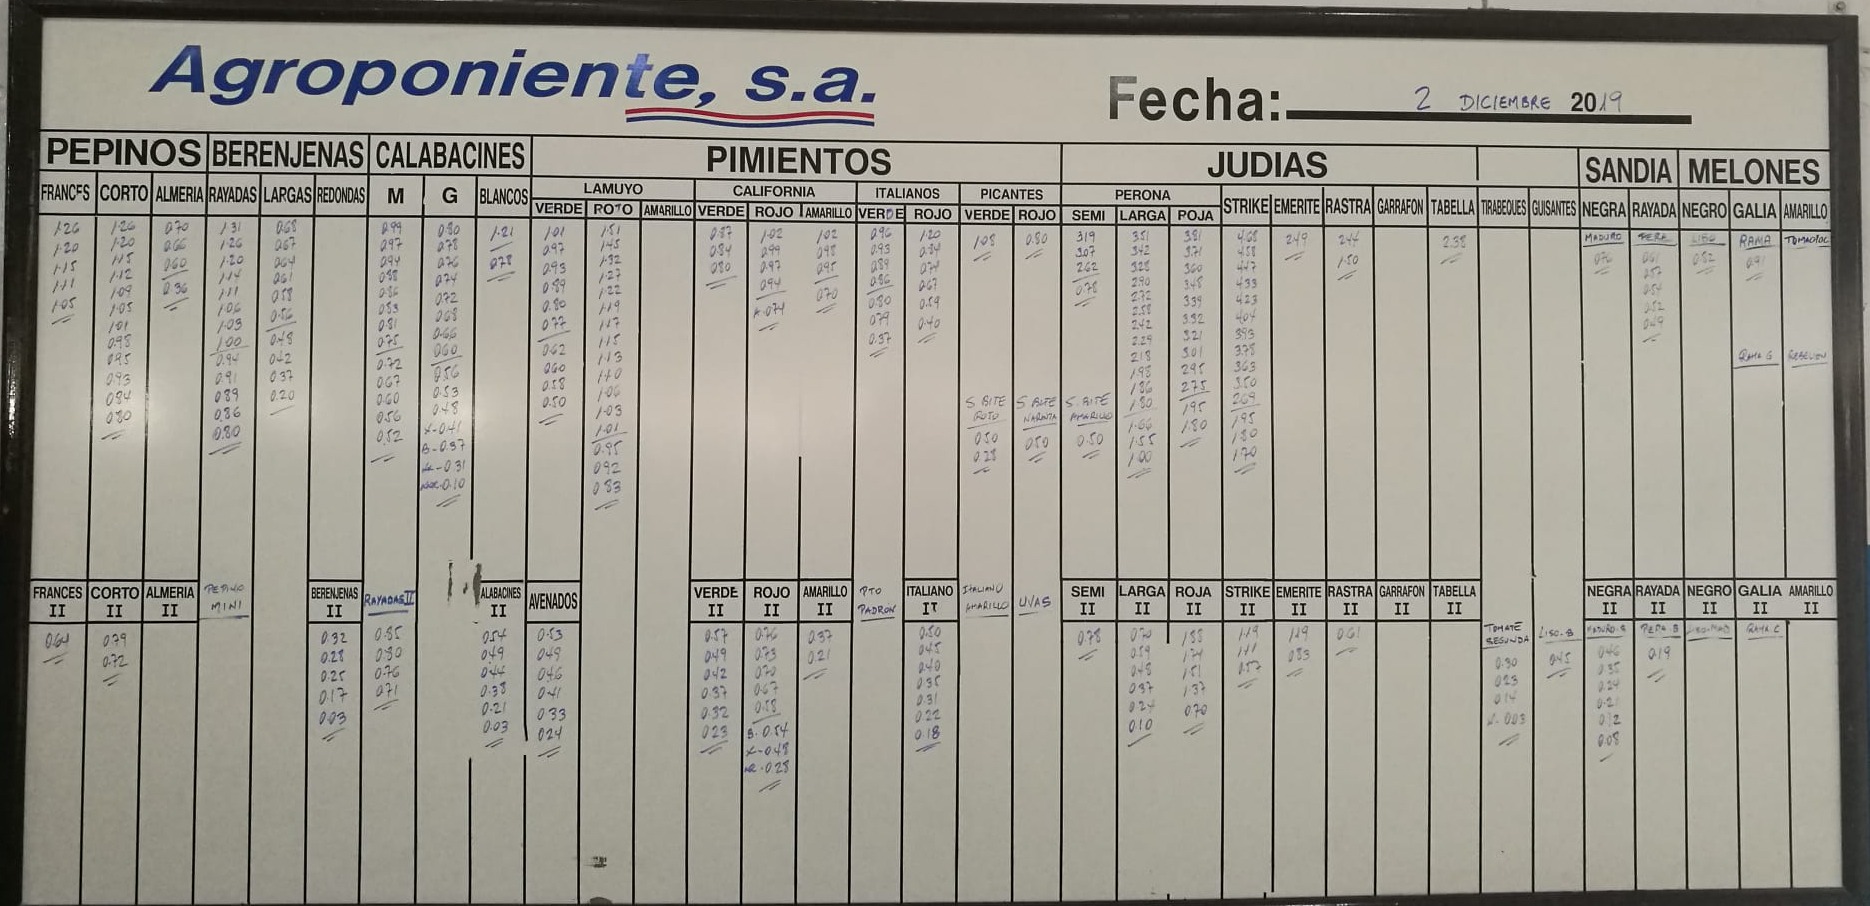 Agroponiente, s.a.
Fecha: 2 DICIEMBRE 2019
PEPINOS BERENJENAS CALABACINES PIMIENTOS JUDIAS SANDIA MELONES
LAMUYO CALIFORNIA ITALIANOS PICANTES PERONA
FRANCES CORTO ALMERIA RAYADAS LARGAS REDONDAS M G BLANCOS VERDE ROJO AMARILLO VERDE ROJO AMARILLO VERDE ROJO VERDE ROJO SEMI LARGA ROJA STRIKE EMERITE RASTRA GARRAFON TABELLA TIRABEQUES GUISANTES NEGRA RAYADA NEGRO GALIA AMARILLO
MADURO PERA LISO RAMA
1.26 1.26 0.70 1.31 0.68 0.99 0.80 1.21 1.01 1.51 0.87 1.02 1.02 0.96 1.20 1.08 0.80 319 351 381 468 249 244 2.38
1.20 1.20 0.66 1.26 0.67 0.97 0.78 0.97 1.45 0.84 0.99 0.98 0.93 0.84 307 342 371 458 0.82 0.91
1.15 1.15 0.60 1.20 0.64 0.94 0.76 0.78 0.93 1.32 0.80 0.97 0.95 0.89 0.74 262 328 360 447 1.50
1.11 1.12 0.36 1.14 0.61 0.88 0.74 0.89 1.27 0.94 0.70 0.86 0.67 0.78 290 348 433
1.05 1.09 1.11 0.58 0.86 0.72 0.80 1.22 0.74 0.80 0.59 272 339 423
1.05 1.06 0.56 0.83 0.68 0.77 1.19 0.79 0.40 258 332 404
1.01 1.03 0.48 0.81 0.66 0.62 1.17 0.37 242 321 393
0.98 1.00 0.42 0.75 0.60 0.60 1.15 229 301 378
0.95 0.94 0.37 0.72 0.56 0.58 1.13 218 295 363
0.93 0.91 0.20 0.67 0.53 0.50 1.10 198 275 350
0.84 0.89 0.60 0.48 1.06 186 195 269
0.80 0.86 0.56 X-0.41 1.03 1.80 1.80 195
0.80 0.52 B-0.37 1.01 1.66 1.80
0.31 0.95 1.55 1.70
0.10 0.92 1.00
0.83
S. BITE ROJO S. BITE NARANJA S. BITE AMARILLO
0.50 0.50 0.50
0.28
RAMA G
FRANCES II CORTO II ALMERIA II PEPINO MINI BERENJENAS II RAYADAS II ALABACINES II AVENADOS VERDE II ROJO II AMARILLO II PTO PADRON ITALIANO II ITALIANO AMARILLO UVAS SEMI II LARGA II ROJA II STRIKE II EMERITE II RASTRA II GARRAFON II TABELLA II NEGRA II RAYADA II NEGRO II GALIA II AMARILLO II
TOMATE SEGUNDA LISO-B MADURO-B PERA-B
0.64 0.79 0.32 0.85 0.54 0.53 0.57 0.76 0.37 0.50 0.78 0.70 1.88 1.19 1.19 0.61
0.72 0.28 0.80 0.49 0.49 0.49 0.73 0.21 0.45 0.59 1.74 1.11 0.83 0.30 0.45 0.46 0.19
0.25 0.76 0.44 0.46 0.42 0.70 0.40 0.48 1.51 0.57 0.23 0.35
0.17 0.71 0.38 0.41 0.37 0.67 0.35 0.37 1.37 0.14 0.24
0.03 0.21 0.33 0.32 0.58 0.31 0.24 0.70 0.03 0.21
0.03 0.24 0.23 B-0.54 0.22 0.10 0.12
X-0.48 0.18 0.08
0.28